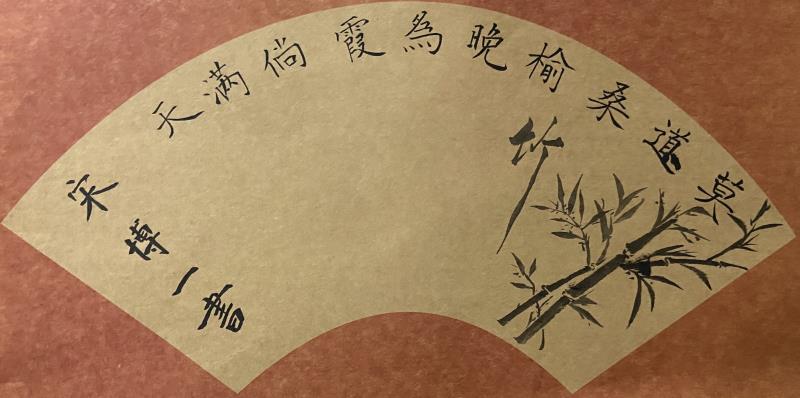 莫道桑榆晚為霞尚满天
竹
宋博一書